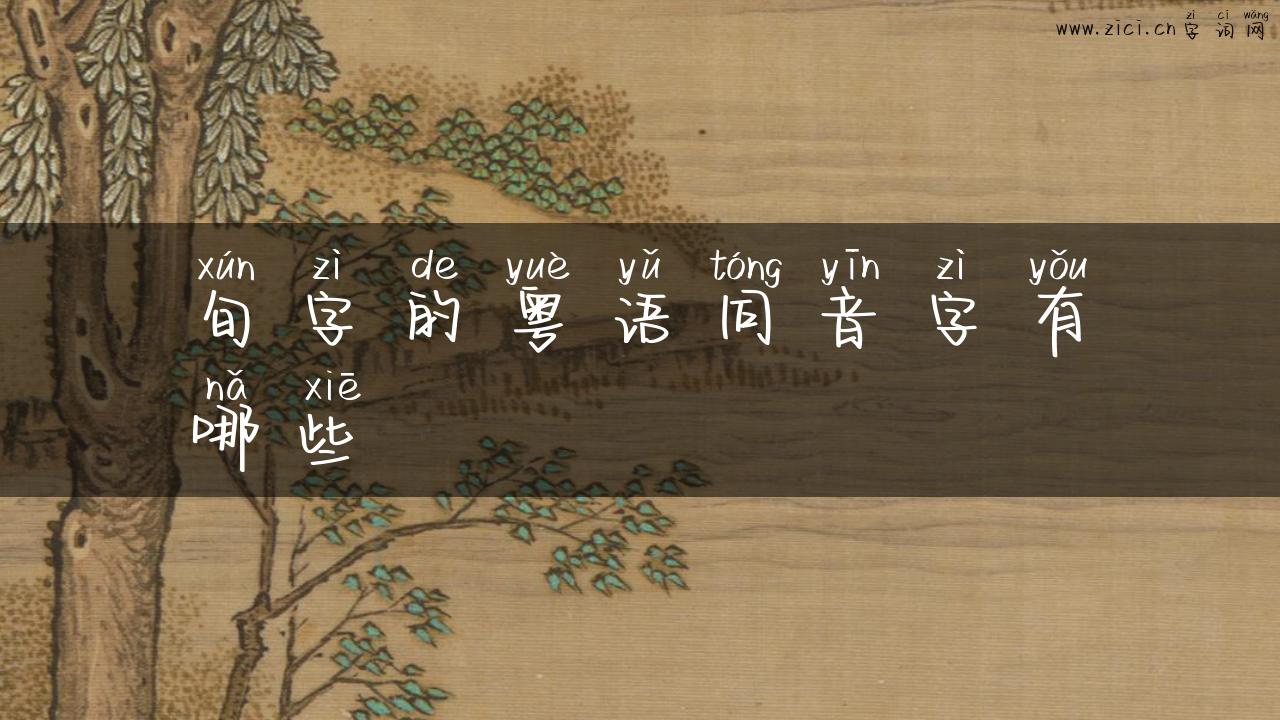 zì cí wǎng
www.zici.cn 字词网
xún zì de yuè yǔ tóng yīn zì yǒu
旬字的粤语同音字有
nǎ xiē
哪些